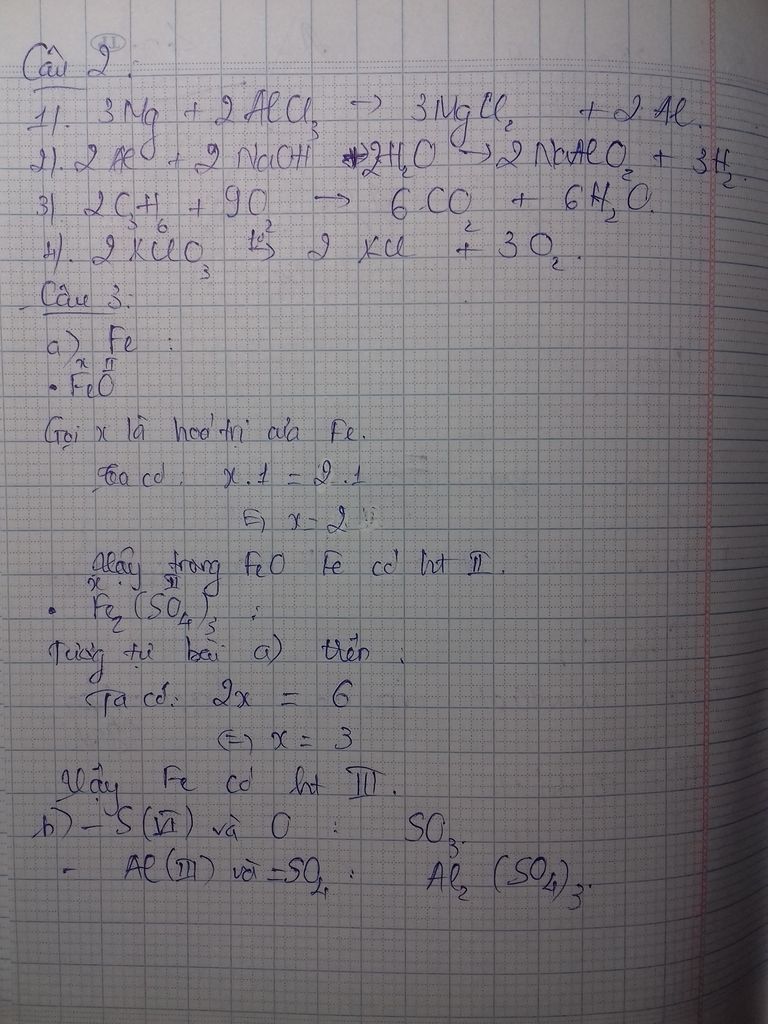 Câu 2:
1). 3Mg + 2AlCl₃ → 3MgCl₂ + 2Al.
2). 2Al + 2NaOH + 2H₂O → 2NaAlO₂ + 3H₂.
3) 2C₃H₆ + 9O₂ → 6CO₂ + 6H₂O.
4). 2KClO₃ t⁰→ 2KCl + 3O₂.
Câu 3:
a) Fe :
x II
• FeO
Gọi x là hoá trị của Fe.
Ta có: x.1 = 2.1
⇔ x = 2
Vậy trong FeO Fe có ht II.
x II
• Fe₂(SO₄)₃ :
Tương tự bài a) trên.
Ta có: 2x = 6
⇔ x = 3
Vậy Fe có ht III.
b) - S(VI) và O : SO₃.
- Al(III) và =SO₄ : Al₂(SO₄)₃.